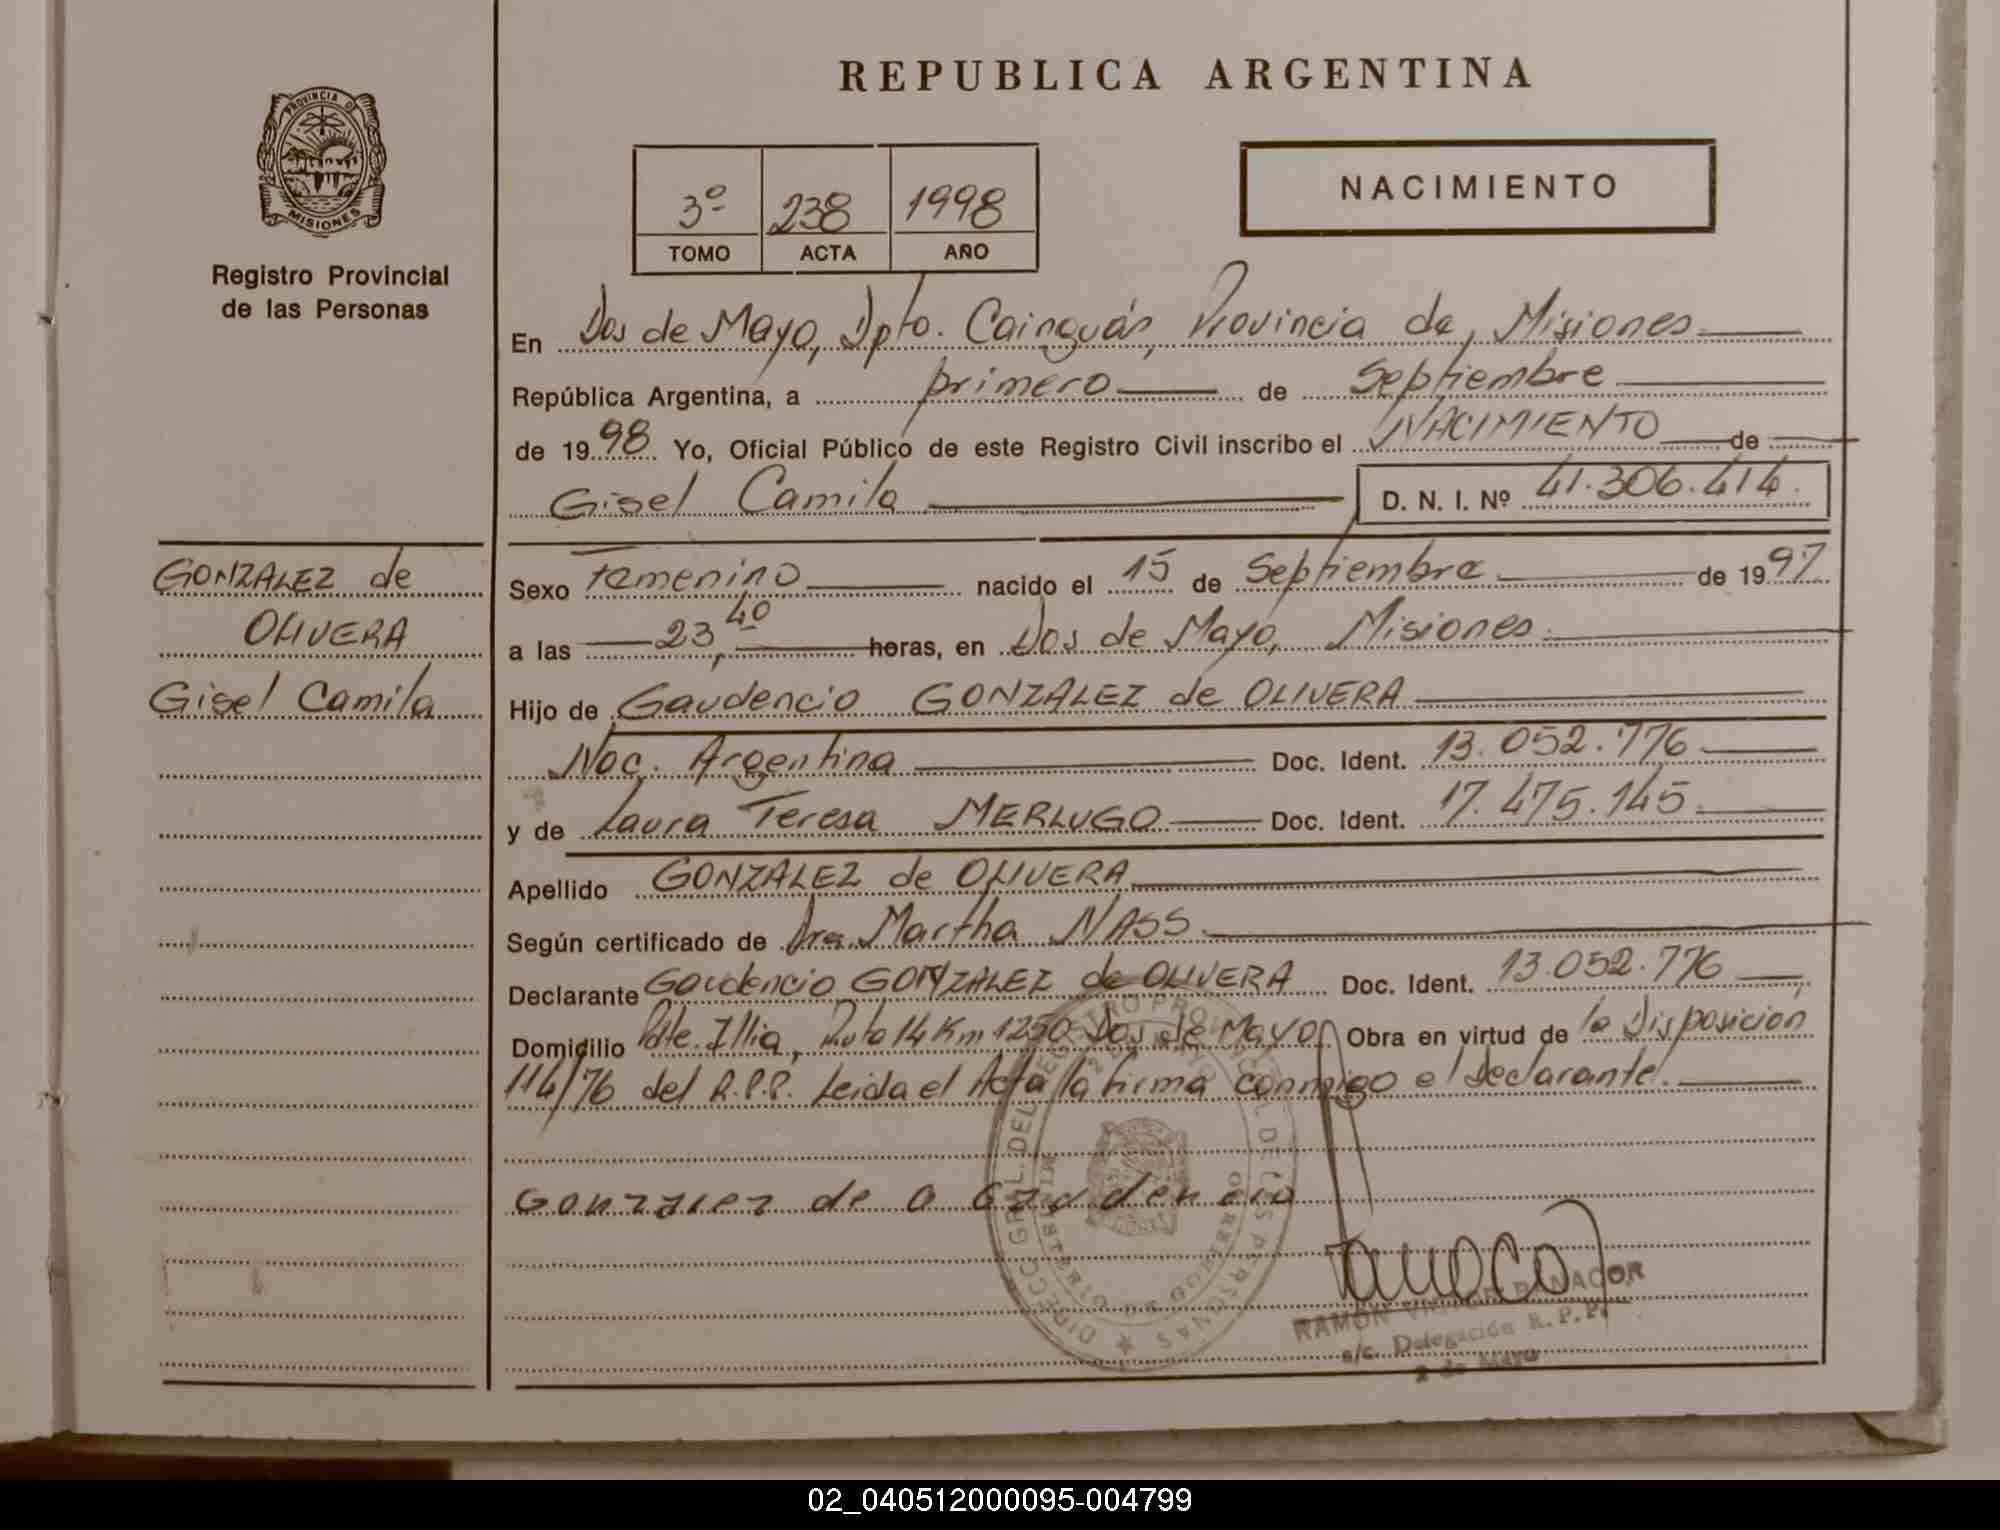 REPUBLICA ARGENTINA
PROVINCIA DE
MISIONES
Registro Provincial
de las Personas
3º 238 1998
TOMO ACTA AÑO
NACIMIENTO
En Dos de Mayo, Dpto. Cainguás, Provincia de Misiones
República Argentina, a primero de Septiembre
de 1998 Yo, Oficial Público de este Registro Civil inscribo el NACIMIENTO de
Gisel Camila D. N. I. Nº 41.306.414.
GONZALEZ de
OLIVERA
Gisel Camila
Sexo Femenino nacido el 15 de Septiembre de 1997
a las 23,40 horas, en Dos de Mayo, Misiones
Hijo de Gaudencio GONZALEZ de OLIVERA
Nac. Argentina Doc. Ident. 13.052.776
y de Laura Teresa MERLUGO Doc. Ident. 17.475.145
Apellido GONZALEZ de OLIVERA
Según certificado de Dra. Martha NASS
Declarante Gaudencio GONZALEZ de OLIVERA Doc. Ident. 13.052.776
Domicilio Pdte. Illia, Ruta 14 Km 1250 Dos de Mayo Obra en virtud de la Disposición
114/76 del R.P.P. Leida el Acta la firma conmigo el Declarante.
Gonzalez de O Gaudencio
DIRECC. GRAL. DEL REGISTRO PROVINCIAL DE LAS PERSONAS
RAMON
a/c Delegación R.P.P.
2 de Mayo
02_040512000095-004799